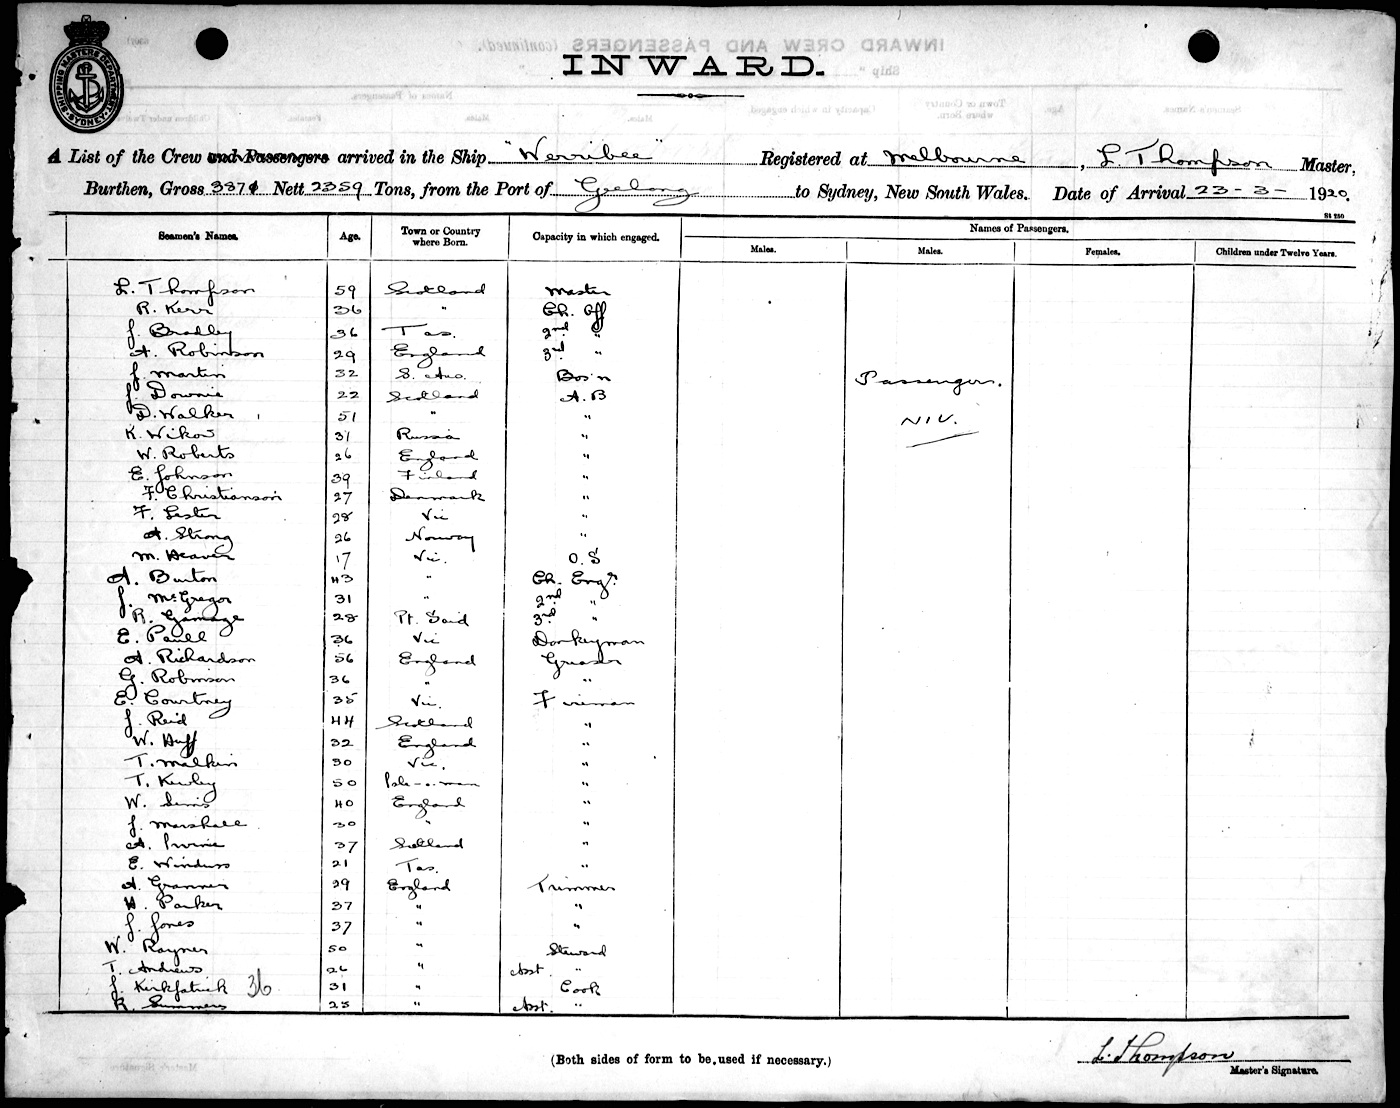 SHIPPING MASTERS DEPARTMENT SYDNEY
INWARD.
A List of the Crew and Passengers arrived in the Ship "Werribee" Registered at Melbourne, L. Thompson Master,
Burthen, Gross 3371 Nett 2359 Tons, from the Port of Geelong to Sydney, New South Wales. Date of Arrival 23-3-1920.
St 750
Seamen's Names. Age. Town or Country where Born. Capacity in which engaged. Names of Passengers.
Males. Males. Females. Children under Twelve Years.
L. Thompson 59 Scotland Master
R. Kerr 36 " Ch. Off
J. Bradley 36 Tas. 2nd "
A. Robinson 29 England 3rd "
J. Martin 32 S. Aus. Bos'n Passengers.
J. Downie 22 Scotland A.B
D. Walker 51 " " NIL.
K. Wikow 31 Russia "
W. Roberts 26 England "
E. Johnson 39 Finland "
F. Christianson 27 Denmark "
F. Lester 28 Vic "
A. Strong 26 Norway "
M. Heaver 17 Vic. O.S
A. Burton 43 " Ch. Engr.
J. McGregor 31 " 2nd "
R. Gamage 28 Pt. Said 3rd "
E. Paull 36 Vic Donkeyman
A. Richardson 56 England Greaser
G. Robinson 36 " "
E. Courtney 35 Vic. Fireman
J. Reid 44 Scotland "
W. Huff 32 England "
T. Malkin 30 Vic. "
T. Kewley 50 Isle-o-man "
W. 40 England "
J. Marshall 30 " "
A. Irvine 37 Scotland "
E. Winduss 21 Tas. "
A. Granner 29 England Trimmer
H. Parker 37 " "
J. Jones 37 " "
W. Rayner 50 " Steward
T. Andrews 26 " Asst. "
J. Kirkpatrick 36 31 " Cook
R. Summers 25 " Asst. "
(Both sides of form to be used if necessary.)
L. Thompson
Master's Signature.